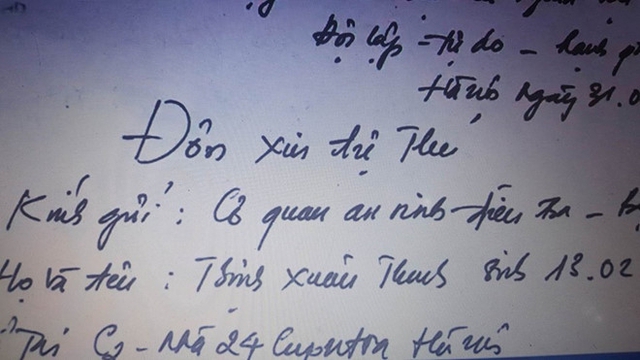 Độc lập - tự do - hạnh
ngày 31.0
Đơn xin tự Thú
Kính gửi : Cơ quan an ninh điều tra - B
Họ và tên : Trịnh Xuân Thanh sinh 13.02
Tại C2 - nhà 24